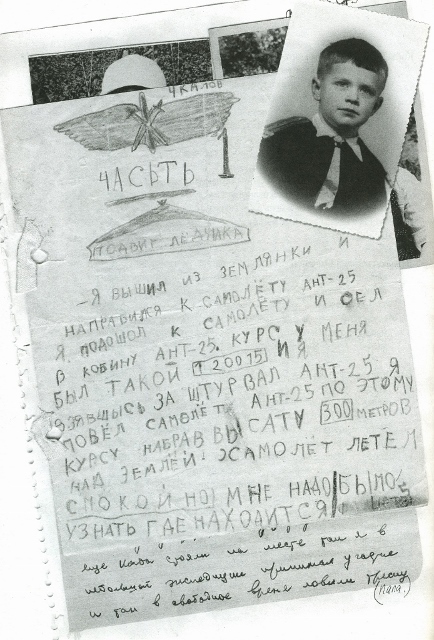 ЧКАЛОВ
ЧАСЬТЬ 1
ПОДВИГ ЛЕДЧИКА
-Я ВЫШИЛ ИЗ ЗЕМЛЯНКИ И
НАПРАВИЛСЯ К САМОЛЁТУ АНТ-25
Я ПОДОШОЛ К САМОЛЁТУ И СЕЛ
В КОБИНУ АНТ-25. КУРС У МЕНЯ
БЫЛ ТАКОЙ 120015 И Я
ВЗЯВШЫСЬ ЗА ШТУРВАЛ АНТ-25 Я
ПОВЁЛ САМОЛЁТ АНТ-25 ПО ЭТОМУ
КУРСУ НАБРАВ ВЫСАТУ 300 МЕТРОВ
НАД ЗЕМЛЕЙ! САМОЛЁТ ЛЕТЕЛ
СПОКОЙНО! МНЕ НАДО БЫЛО
УЗНАТЬ ГДЕ НАХОДИТСЯ
еще когда стояли на месте там я в
небольшой экспедиции принимал участие
и там в свободное время ловили треску
(папа.)